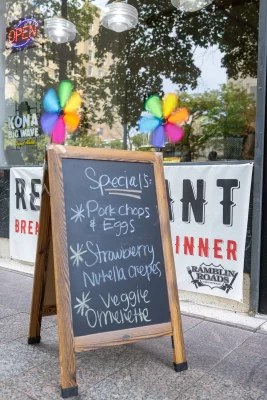 OPEN
KONA
BIG WAVE
Specials:
Pork chops
& Eggs
Strawberry
Nutella crepes
Veggie
Omelette
RE ANT
BREA INNER
RAMBLIN
ROADS